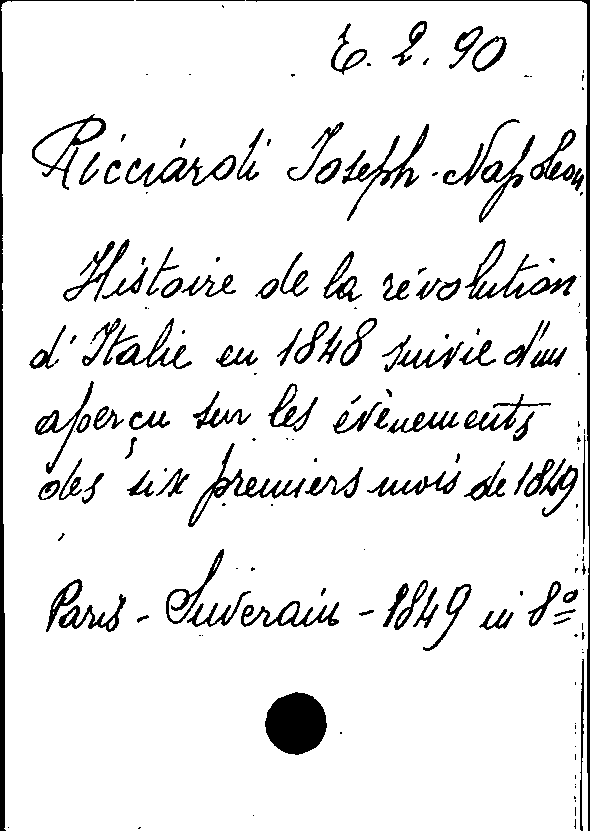 E. 2. 90
Ricciardi Joseph-Napoleon
Histoire de la révolution
d'Italie en 1848 suivie d'un
aperçu sur les évènements
des six premiers mois de 1849
Paris - Suverain - 1849 in 8º